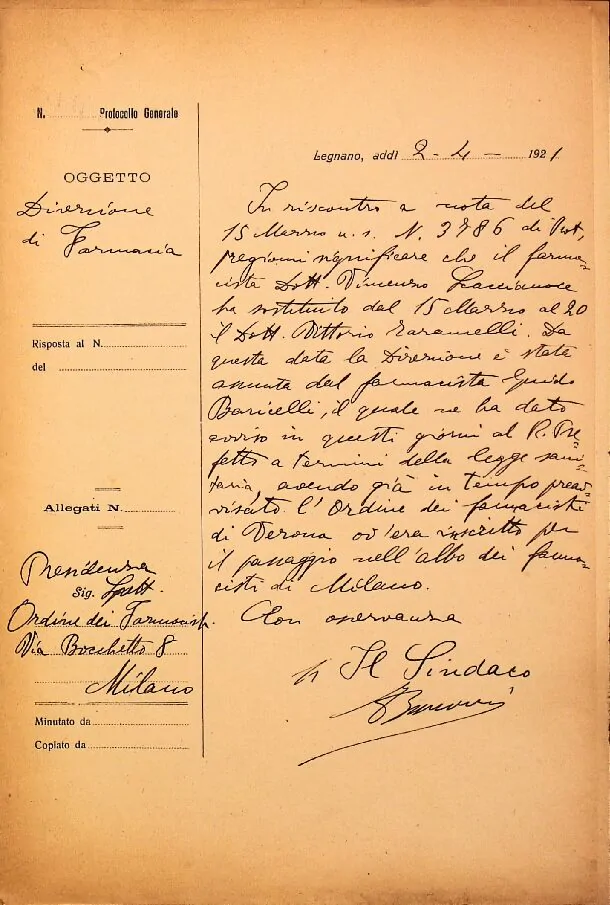 N. Protocollo Generale
OGGETTO
Direzione
di Farmacia
Risposta al N.
del
Allegati N.
Presidenza
Sig. Spett.
Ordine dei Farmacisti
Via Bocchetto 8
Milano
Minutato da
Copiato da
Legnano, addì 2 - 4 - 1921
In riscontro a nota del
15 Marzo u. s. N. 3786 di Prot,
pregiomi significare che il farma-
cista Dott. Vincenzo
ha sostituito dal 15 Marzo al 20
il Dott. Vittorio Zaramelli. Da
questa data la Direzione è stata
assunta dal farmacista Guido
Baricelli, il quale ne ha dato
avviso in questi giorni al R. Pre-
fetto a termini della legge sani-
taria, avendo già in tempo preav-
visato l'Ordine dei farmacisti
di Verona ov'era inscritto per
il passaggio nell'albo dei farma-
cisti di Milano.
Con osservanza
Il Sindaco